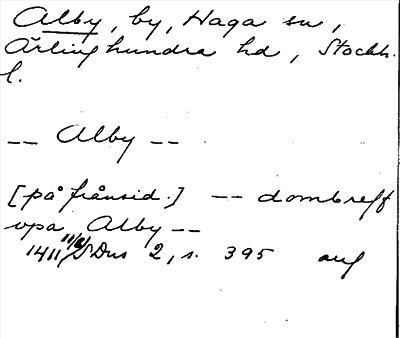 Alby, by, Haga sn,
Ärlinghundra hd, Stockh.
l.
-- Alby --
[på frånsid.] -- dombreff
vpa Alby --
1411 11/6 SDns 2, s. 395 avf